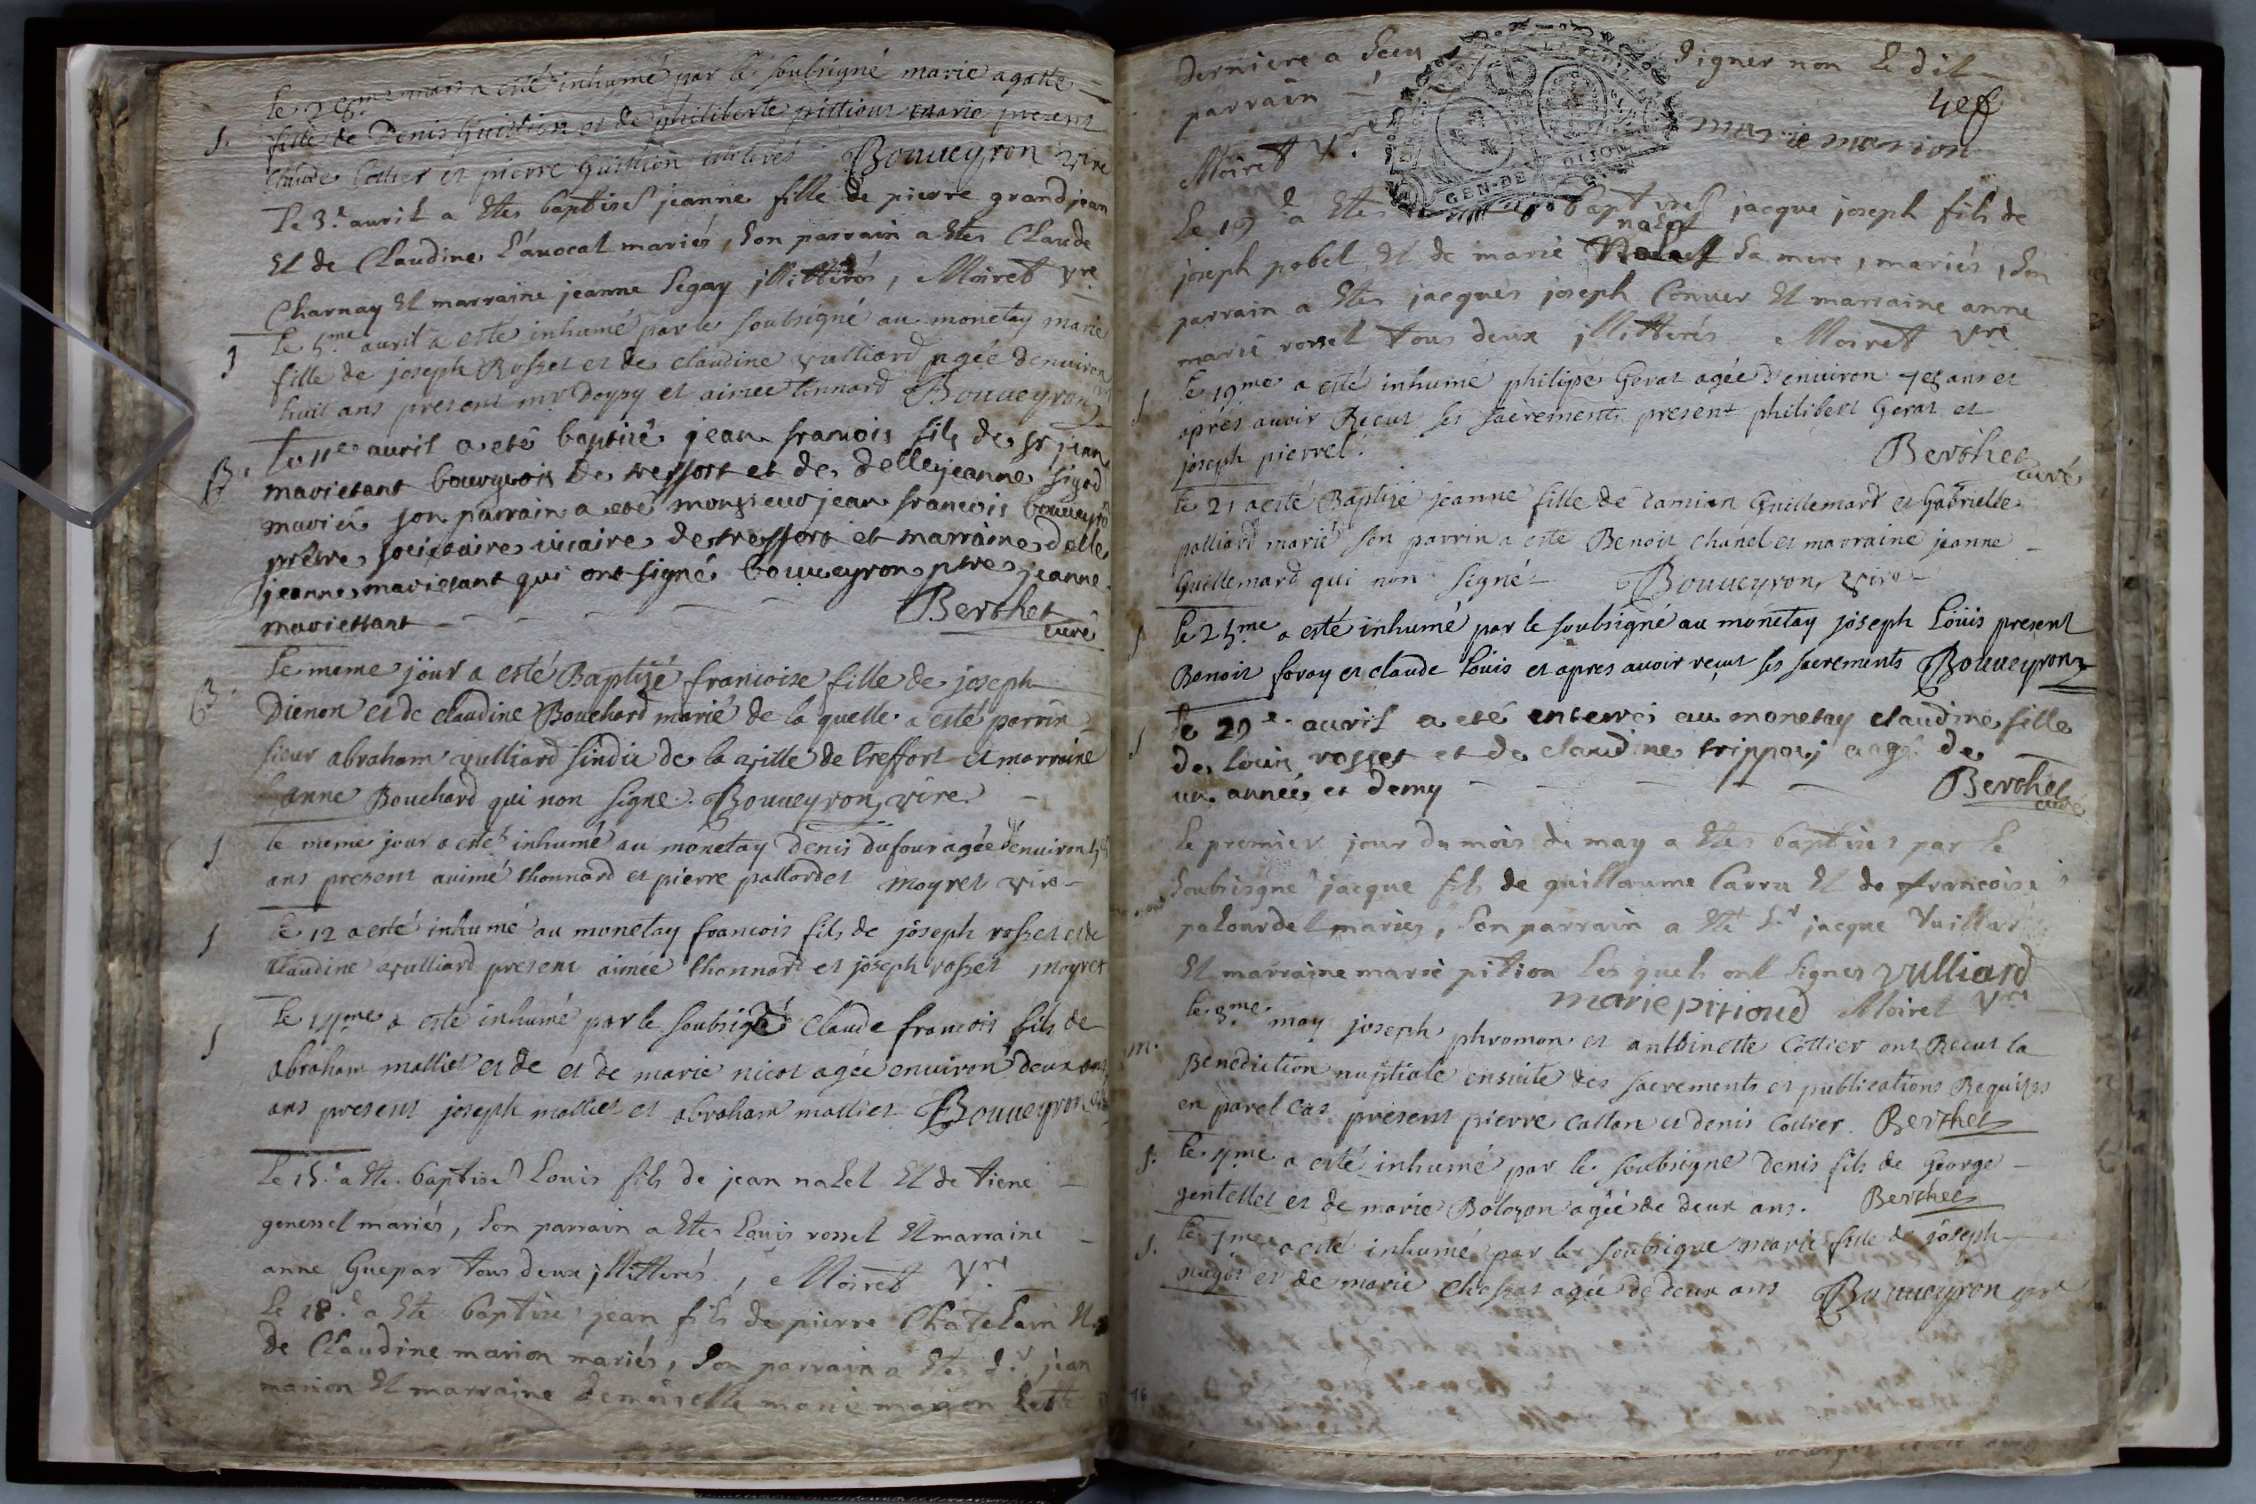 mars a esté inhumé par le soubsigné marie agathe
fille de Denis Guillion et de philiberte pittiour marié present
Claude Cottier et pierre Guillion Bouueyron vire
S.
Le 3.e auril a Etes baptises jeanne fille de pierre grandjean
Et de Claudine L'auocat mariés, Son parrain a Etes Claude
Charnay Et marraine jeanne Segay jllitterés, Moiret Vre
Le 5.me auril a esté inhumé par le soubsigné au monetay marie
fille de joseph Rosset et de claudine vulliard agée denuiron
huit ans present mr Doysy et aimée Bouueyron
J
Le 11e auril a eté baptizé jean francois fils de sr jean
mavietant bourgeois de treffort et de delle jeanne
B.
mariés son parrain a eté monsieur jean francois bouueyron
prêtre societaire vicaire de treffort et marraine delle
jeanne mavietant qui ont signé bouueyron ptre jeanne
maviettant Berthet
curé
Le meme jour a esté Baptisé francoise fille de joseph
B.
Dienon et de claudine Bouchard marié de la quelle a esté parrin
sieur abraham vulliard sindic de la ville de treffort et marraine
anne Bouchard qui non signe. Bouueyron vire
S
le meme jour a esté inhumé au monetay denis dufour agée d'enuiron
ans present aimé thonnard et pierre pallordet moyret vire
S
Le 12 a esté inhumé au monetay francois fils de joseph rosset et de
claudine vulliard present aimée thonnard et joseph rosset moyret
S
Le 14me a esté inhumé par le soubsigé claude francois fils de
abraham mallict et de et de marie nicot agée enuiron deux ans
ans present joseph mallict et abraham mallict Bouueyron
Le 15.e a Ete baptisé Louis fils de jean nalet Et de tiene
genessel mariés, Son parrain a Etes Louis rossel Et marraine
anne Guepar tous deux jllitterés, Moiret Vre
Le 18.e a Ete baptise jean fils de pierre Chatelain Et
de Claudine marion mariés, Son parrain a Etes Sr jean
marion Et marraine demoiselle marie marion
Derniere a Sceu Signer non Le dit
parrain
Moiret Vre marie marion
GEN. DE DIJON
Le 19 a Etes baptises jacque joseph fils de
nalet
joseph pobel Et de marie Sa mere, mariés, Son
parrain a Etes jacques joseph Conuer Et marraine anne
marie rossel tous deux jllitterés Moiret Vre
S
le 19me a esté inhumé philipe Gerat agée d'enuiron ans et
apres auoir Reçut les sacrements present philibert Gerat et
joseph pierrel. Berthet
curé
Le 21 a esté Baptisé jeanne fille de damian Guillemard et Gabrielle
palliard marié son parrin a esté Benoit chanel et marraine jeanne
Guillemard qui non signés Bouueyron vire
S
le 25me a esté inhumé par le soubsigné au monetay joseph Loüis present
Benoit foray et claude louis et apres auoir reçut les sacrements Bouueyron
S
le 29e. auril a eté enterré au monetay claudine fille
de louis rosset et de claudine agé de
un année et demy Berthet
curé
Le premier jour du mois de may a Etes baptises par le
Soubsigné jacque fils de guillaume Carru Et de francoise
palourdel mariés, Son parrain a Eté Sr jacque Vuilliard
Et marraine marie pition Les quels ont Signes vulliard
marie pitioud Moiret Vre
m.
le 3me may joseph phromon et anthoinette cottier ont Recut la
Benediction nuptiale ensuite des sacrements et publications Requises
en parel cas present pierre callan et denis cottier. Berthet
S.
le 4me a esté inhumé par le soubsigné denis fils de George
gentellet et de marie Bolozon agée de deux ans. Berthet
S.
le a esté inhumé par le soubsigne marie fille de joseph
et de marie agée de deux ans Bouueyron